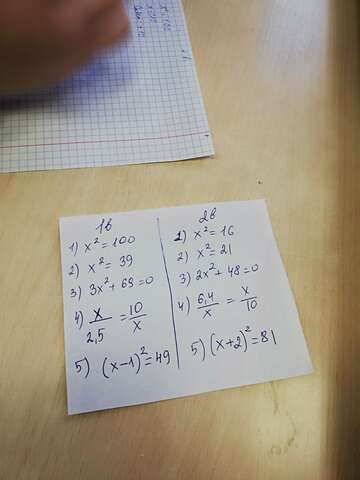 1в
1) x² = 100
2) x² = 39
3) 3x² + 63 = 0
4) x/2,5 = 10/x
5) (x-1)² = 49
2в
1) x² = 16
2) x² = 21
3) 2x² + 48 = 0
4) 6,4/x = x/10
5) (x+2)² = 81